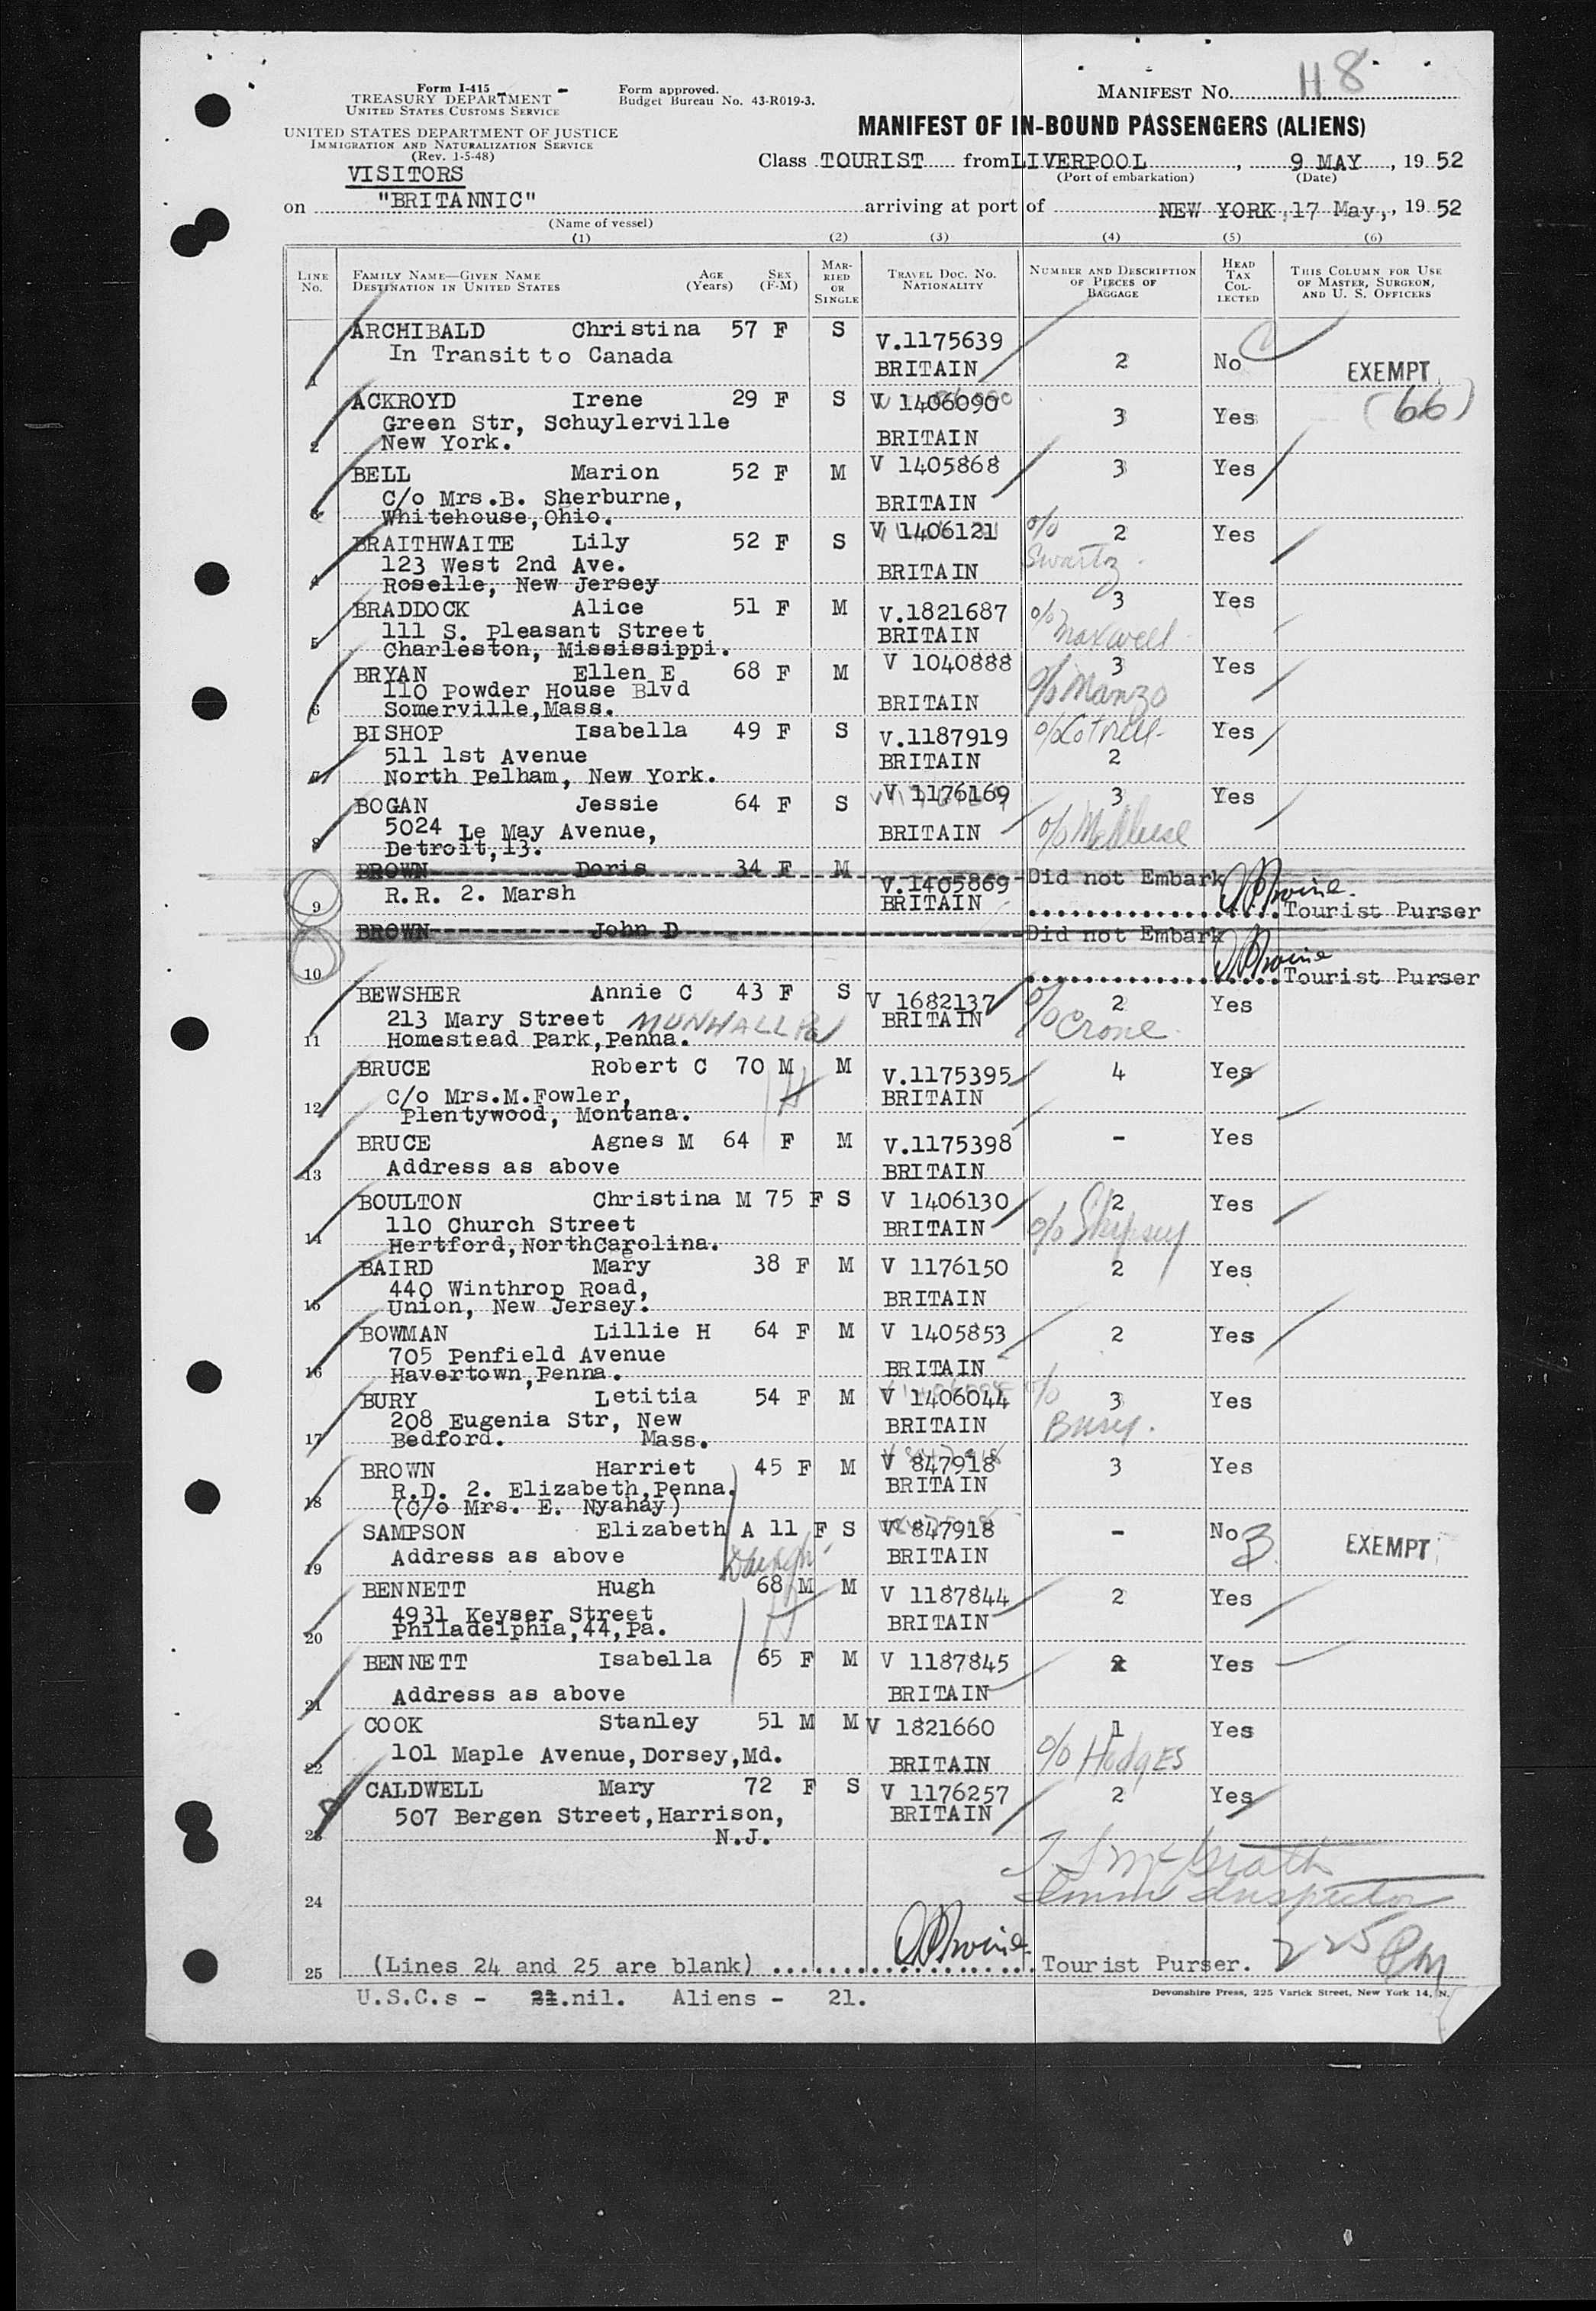 Form I-415
TREASURY DEPARTMENT
UNITED STATES CUSTOMS SERVICE
UNITED STATES DEPARTMENT OF JUSTICE
IMMIGRATION AND NATURALIZATION SERVICE
(Rev. 1-5-48)
VISITORS
Form approved.
Budget Bureau No. 43-R019-3.
MANIFEST No. 118
MANIFEST OF IN-BOUND PASSENGERS (ALIENS)
Class TOURIST from LIVERPOOL, 9 MAY, 19 52
(Port of embarkation) (Date)
on "BRITANNIC" arriving at port of NEW YORK, 17 May,, 19 52
(Name of vessel)
(1) (2) (3) (4) (5) (6)
LINE No. FAMILY NAME—GIVEN NAME DESTINATION IN UNITED STATES AGE (Years) SEX (F-M) MARRIED OR SINGLE TRAVEL DOC. NO. NATIONALITY NUMBER AND DESCRIPTION OF PIECES OF BAGGAGE HEAD TAX COLLECTED THIS COLUMN FOR USE OF MASTER, SURGEON, AND U. S. OFFICERS
ARCHIBALD Christina 57 F S V.1175639
In Transit to Canada 2 No
1 BRITAIN EXEMPT
ACKROYD Irene 29 F S V 1406090 (66)
Green Str, Schuylerville 3 Yes
2 New York. BRITAIN
BELL Marion 52 F M V 1405868 3 Yes
C/o Mrs.B. Sherburne, BRITAIN
3 Whitehouse,Ohio.
BRAITHWAITE Lily 52 F S V 1406121 c/o 2 Yes
123 West 2nd Ave. BRITAIN Swartz
4 Roselle, New Jersey
BRADDOCK Alice 51 F M V.1821687 3 Yes
111 S. Pleasant Street BRITAIN c/o Maxwell
5 Charleston, Mississippi.
BRYAN Ellen E 68 F M V 1040888 3 Yes
110 Powder House Blvd BRITAIN c/o Manzo
6 Somerville,Mass.
BISHOP Isabella 49 F S V.1187919 Yes
511 1st Avenue BRITAIN 2
7 North Pelham, New York.
BOGAN Jessie 64 F S V 1176169 3 Yes
5024 Le May Avenue, BRITAIN
8 Detroit,13.
BROWN Doris 34 F M V.1405869 Did not Embark
R.R. 2. Marsh BRITAIN
9 Tourist Purser
BROWN John D Did not Embark
10 Tourist Purser
BEWSHER Annie C 43 F S V 1682137 2 Yes
213 Mary Street MUNHALL Pa BRITAIN c/o Crone
11 Homestead Park,Penna.
BRUCE Robert C 70 M M V.1175395 4 Yes
C/o Mrs.M.Fowler, BRITAIN
12 Plentywood, Montana.
BRUCE Agnes M 64 F M V.1175398 - Yes
13 Address as above BRITAIN
BOULTON Christina M 75 F S V 1406130 2 Yes
110 Church Street BRITAIN
14 Hertford,NorthCarolina.
BAIRD Mary 38 F M V 1176150 2 Yes
440 Winthrop Road, BRITAIN
15 Union, New Jersey.
BOWMAN Lillie H 64 F M V 1405853 2 Yes
705 Penfield Avenue BRITAIN
16 Havertown,Penna.
BURY Letitia 54 F M V 1406044 c/o 3 Yes
208 Eugenia Str, New BRITAIN Bury.
17 Bedford. Mass.
BROWN Harriet 45 F M V 847918 3 Yes
R.D. 2. Elizabeth,Penna. BRITAIN
18 (C/o Mrs. E. Nyahay)
SAMPSON Elizabeth A 11 F S V 847918 - No
19 Address as above BRITAIN EXEMPT
BENNETT Hugh 68 M M V 1187844 2 Yes
4931 Keyser Street BRITAIN
20 Philadelphia,44,Pa.
BENNETT Isabella 65 F M V 1187845 Yes
21 Address as above BRITAIN
COOK Stanley 51 M M V 1821660 1 Yes
22 101 Maple Avenue,Dorsey,Md. BRITAIN c/o Hodges
CALDWELL Mary 72 F S V 1176257 2 Yes
507 Bergen Street,Harrison, BRITAIN
23 N.J.
McGrath
24 Imm Inspector
25 (Lines 24 and 25 are blank) Tourist Purser. 225 Pm
U.S.C.s - 21.nil. Aliens - 21.
Devonshire Press, 225 Varick Street, New York 14, N.